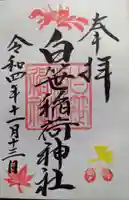 奉拝
白笹稲荷神社
令和四年十一月十三日